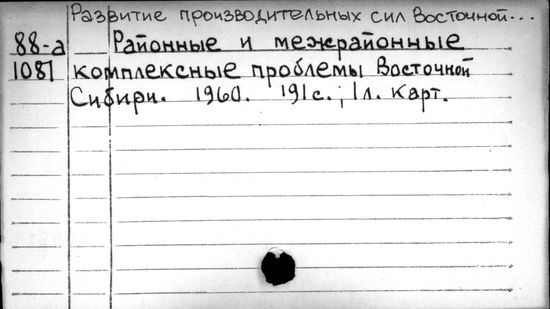 Развитие производительных сил Восточной...
88-а Районные и межрайонные
1081 комплексные проблемы Восточной
Сибири. 1960. 191с.; 1л. карт.